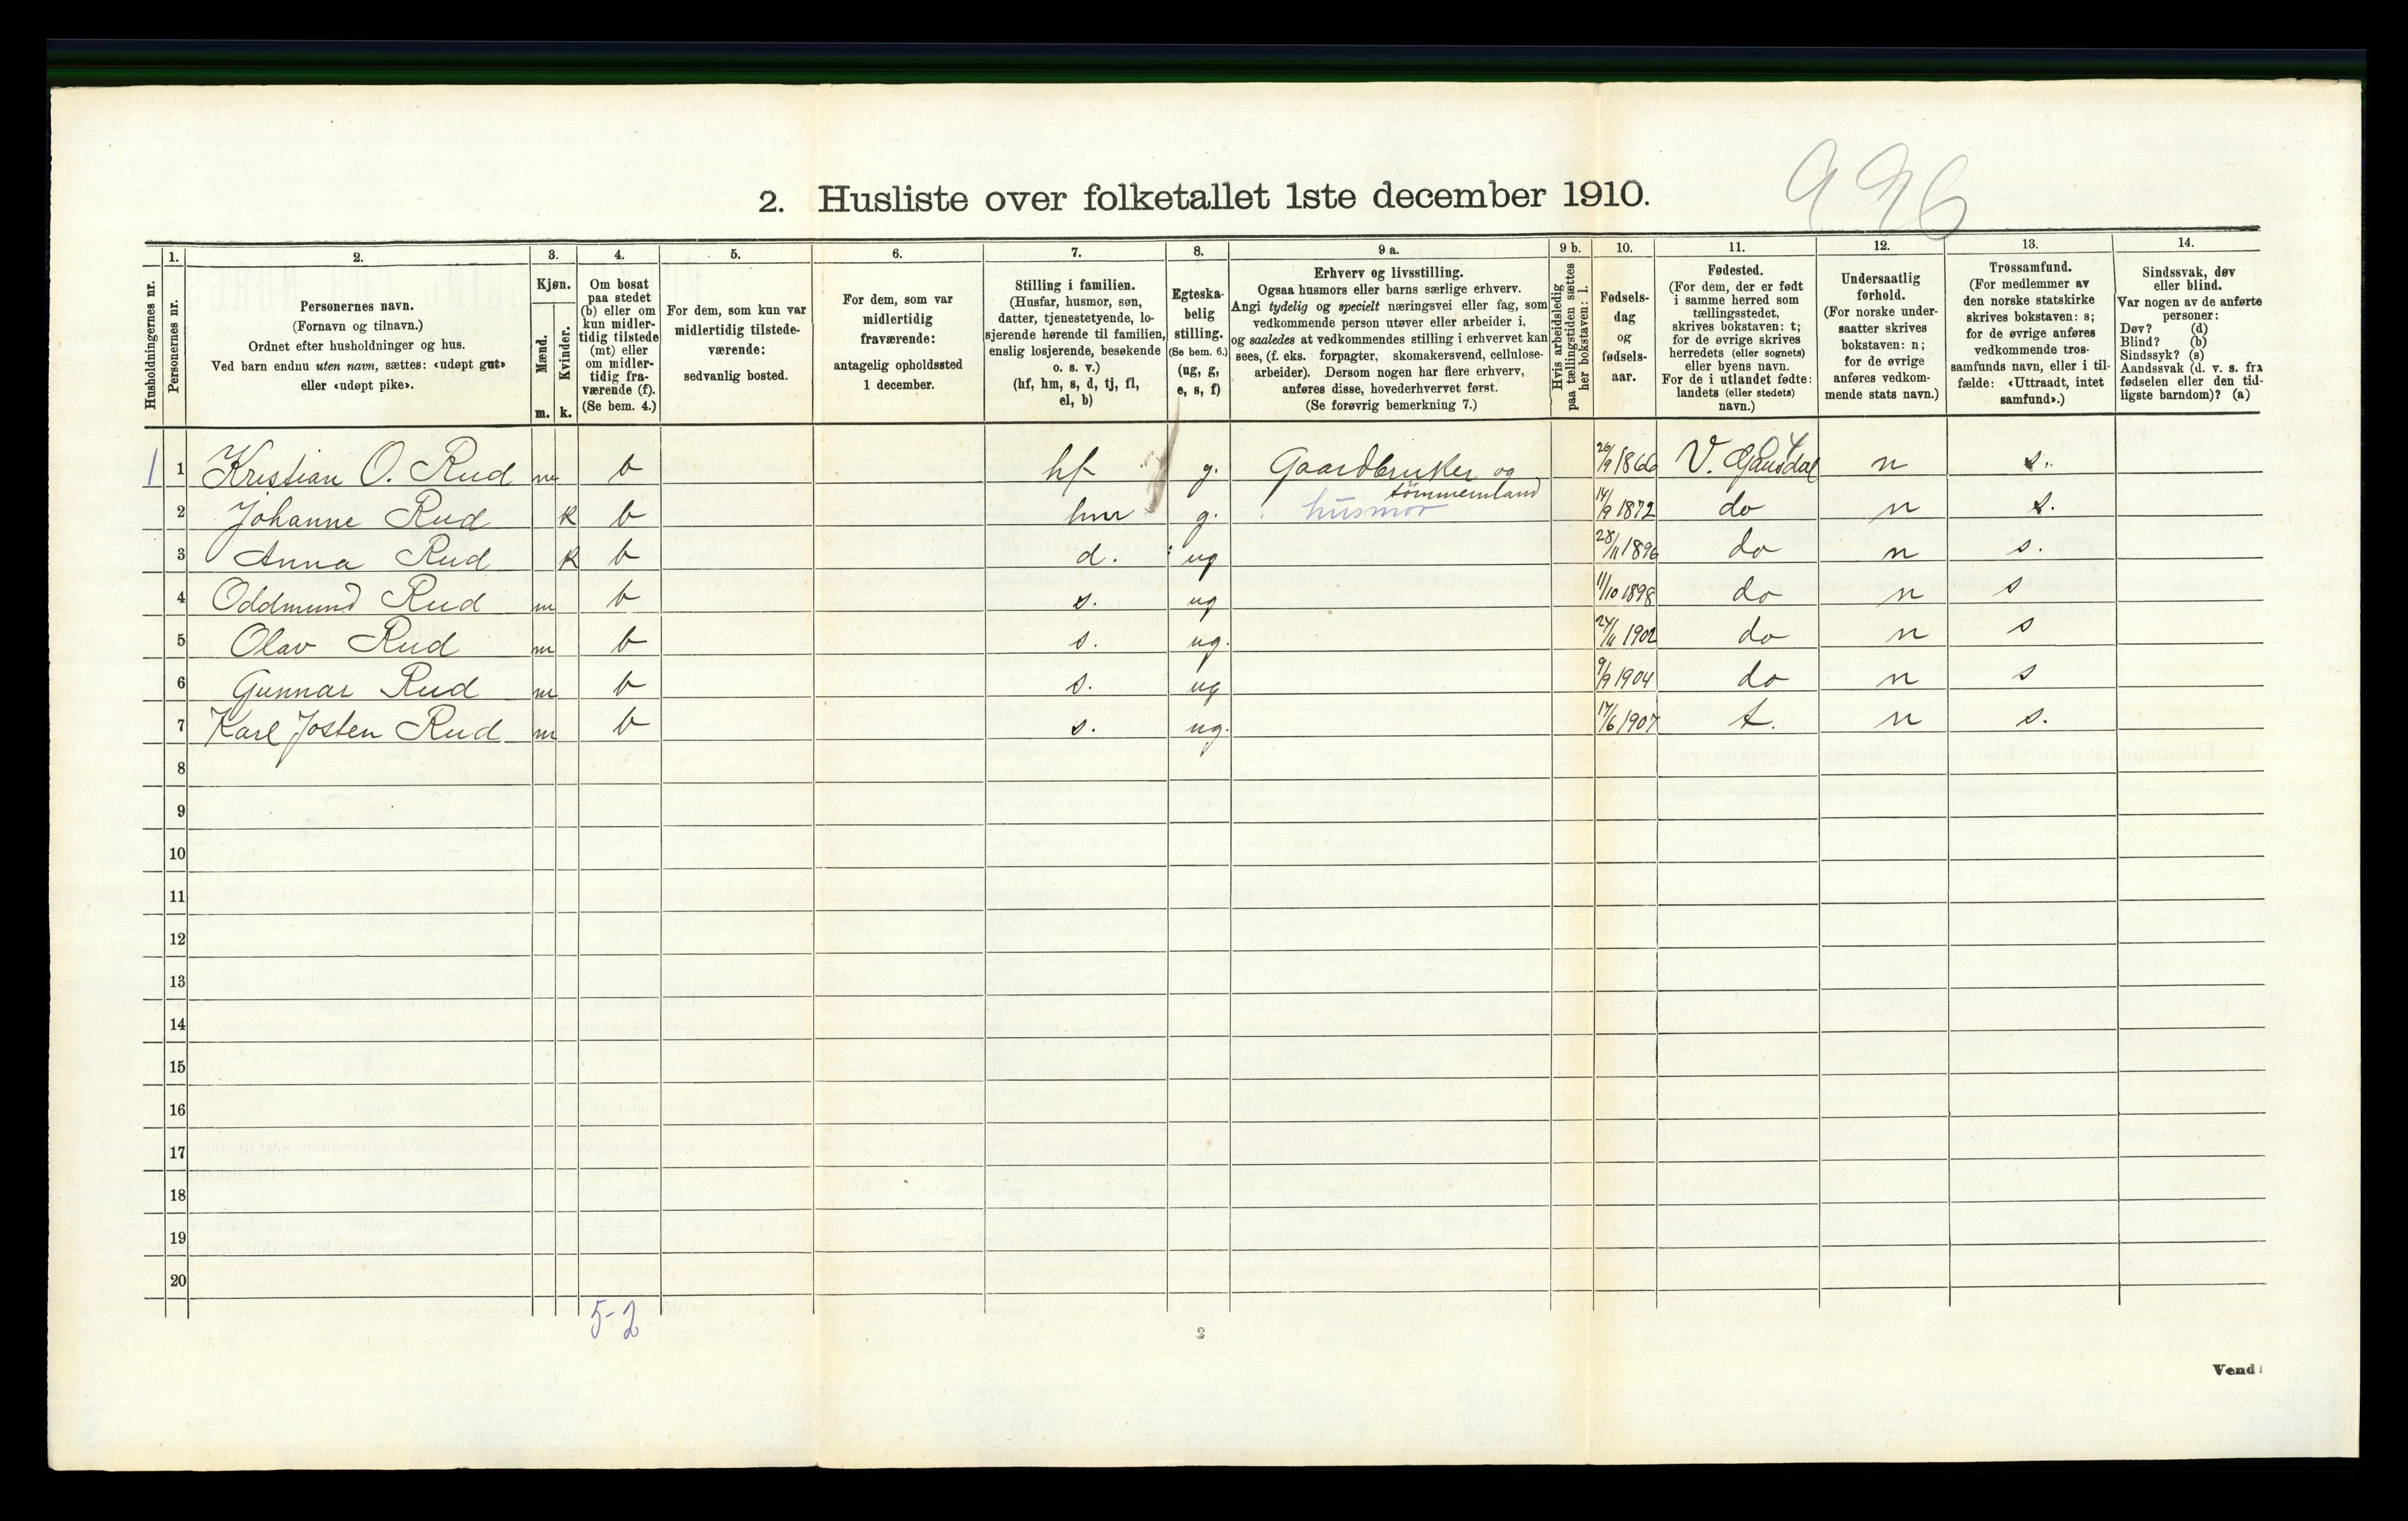 996
2. Husliste over folketallet 1ste december 1910.
Husholdningernes nr.
1. Personernes nr.
2. Personernes navn.
(Fornavn og tilnavn.)
Ordnet efter husholdninger og hus.
Ved barn endnu uten navn, sættes: «udøpt gut»
eller «udøpt pike».
3. Kjøn.
Mænd. m.
Kvinder. k.
4. Om bosat
paa stedet
(b) eller om
kun midler-
tidig tilstede
(mt) eller
om midler-
tidig fra-
værende (f).
(Se bem. 4.)
5. For dem, som kun var
midlertidig tilstede-
værende:
sedvanlig bosted.
6. For dem, som var
midlertidig
fraværende:
antagelig opholdssted
1 december.
7. Stilling i familien.
(Husfar, husmor, søn,
datter, tjenestetyende, lo-
sjerende hørende til familien,
enslig losjerende, besøkende
o. s. v.)
(hf, hm, s, d, tj, fl,
el, b)
8. Egteska-
belig
stilling.
(Se bem. 6.)
(ug, g,
e, s, f)
9 a. Erhverv og livsstilling.
Ogsaa husmors eller barns særlige erhverv.
Angi tydelig og specielt næringsvei eller fag, som
vedkommende person utøver eller arbeider i,
og saaledes at vedkommendes stilling i erhvervet kan
sees, (f. eks. forpagter, skomakersvend, cellulose-
arbeider). Dersom nogen har flere erhverv,
anføres disse, hovederhvervet først.
(Se forøvrig bemerkning 7.)
9 b. Hvis arbeidsledig
paa tællingstiden sættes
her bokstaven: l.
10. Fødsels-
dag
og
fødsels-
aar.
11. Fødested.
(For dem, der er født
i samme herred som
tællingsstedet,
skrives bokstaven: t;
for de øvrige skrives
herredets (eller sognets)
eller byens navn.
For de i utlandet fødte:
landets (eller stedets)
navn.)
12. Undersaatlig
forhold.
(For norske under-
saatter skrives
bokstaven: n;
for de øvrige
anføres vedkom-
mende stats navn.)
13. Trossamfund.
(For medlemmer av
den norske statskirke
skrives bokstaven: s;
for de øvrige anføres
vedkommende tros-
samfunds navn, eller i til-
fælde: «Uttraadt, intet
samfund».)
14. Sindssvak, døv
eller blind.
Var nogen av de anførte
personer:
Døv? (d)
Blind? (b)
Sindssyk? (s)
Aandssvak (d. v. s. fra
fødselen eller den tid-
ligste barndom)? (a)
1 1 Kristian O. Rud m b hf g. Gaardbruker og 26/9 1866 V. Gausdal n s.
2 Johanne Rud k b hm g. husmor 14/9 1872 do n s.
3 Anna Rud k b d. ug 28/11 1896 do n s.
4 Oddmund Rud m b s. ug 11/10 1898 do n s
5 Olav Rud m b s. ug. 24/11 1902 do n s
6 Gunnar Rud m b s. ug 9/9 1904 do n s
7 Karl Josten Rud m b s. ug. 17/6 1907 t. n s.
8
9
10
11
12
13
14
15
16
17
18
19
20
5-2
2
Vend!